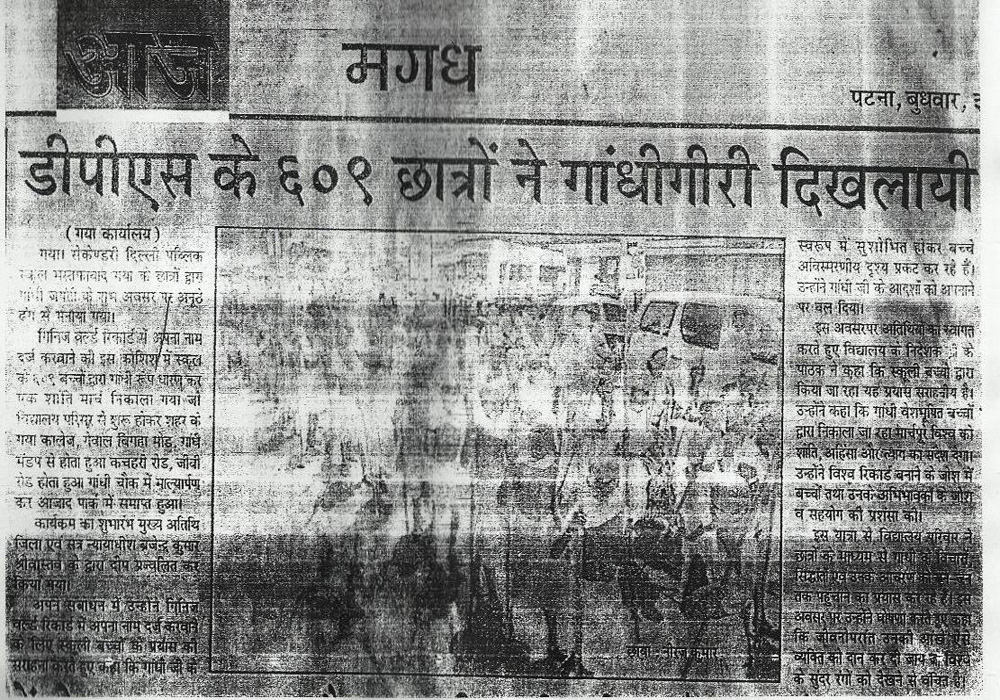 आज
मगध
पटना, बुधवार,
डीपीएस के ६०९ छात्रों ने गांधीगीरी दिखलायी
(गया कार्यालय)
गया। सेकेण्डरी दिल्ली पब्लिक
स्कूल गया के छात्रों द्वारा
गांधी जयंती के अवसर पर अनूठे
ढंग से मनाया गया।
गिनिज वर्ल्ड रिकार्ड में अपना नाम
दर्ज करवाने की इस कोशिश में स्कूल
के ६०९ बच्चों द्वारा गांधी रूप धारण कर
एक शांति मार्च निकाला गया जो
विद्यालय परिसर से शुरू होकर शहर के
गया कालेज, गेवाल बिगहा मोड़, गांधी
मंडप से होता हुआ कचहरी रोड, जीबी
रोड होता हुआ गांधी चौक में माल्यार्पण
कर आजाद पार्क में समाप्त हुआ।
कार्यकम का शुभारंभ मुख्य अतिथि
जिला एवं सत्र न्यायाधीश ब्रजेन्द्र कुमार
श्रीवास्तव के द्वारा दीप प्रज्वलित कर
किया गया।
अपने संबोधन में उन्होंने गिनिज
वर्ल्ड रिकार्ड में अपना नाम दर्ज करवाने
के लिए स्कूली बच्चों के प्रयास की
सराहना करते हुए कहा कि गांधी जी के
छाया - नीरज कुमार
स्वरूप में सुशोभित होकर बच्चे
अविस्मरणीय दृश्य प्रकट कर रहे हैं।
उन्होंने गांधी जी के आदर्शों को अपनाने
पर बल दिया।
इस अवसरपर अतिथियों का स्वागत
करते हुए विद्यालय के निदेशक के
पाठक ने कहा कि स्कूली बच्चों द्वारा
किया जा रहा यह प्रयास सराहनीय है।
उन्होंने कहा कि गांधी वेशभूषित बच्चों
द्वारा निकाला जा रहा मार्चपूर विश्व को
शांति, अहिंसा और न्याय का संदेश देगा।
उन्होंने विश्व रिकार्ड बनाने के जोश में
बच्चों तथा उनके अभिभावकों के जोश
व सहयोग की प्रशंसा की।
इस यात्रा से विद्यालय परिवार ने
छात्रों के माध्यम से गांधी के विचारों,
सिद्धांतों एवं उनके
तक पहुंचाने का प्रयास कर रहे हैं। इस
अवसर पर उन्होंने घोषणा करते हुए कहा
कि जीवनोपरांत उनकी आंखें ऐसे
व्यक्ति को दान कर दी जाय जो विश्व
के सुंदर रंगों को देखने से वंचित है।